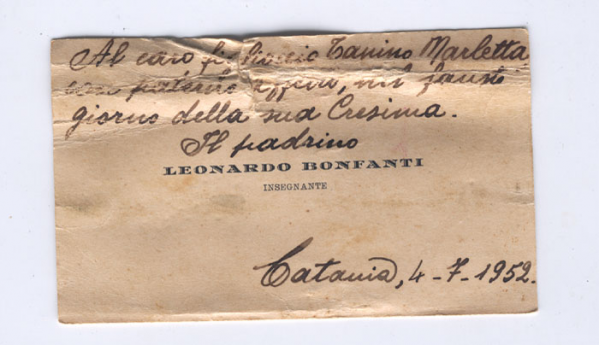 Al caro figlioccio Tanino Marletta
con paterno affetto, nel fausto
giorno della sua Cresima.
Il padrino
LEONARDO BONFANTI
INSEGNANTE
Catania, 4-7-1952.